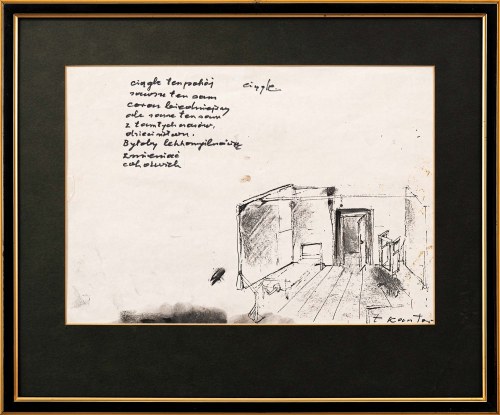 ciągle ten pokój
ciągle
zawsze ten sam
coraz biedniejszy
ale zawsze ten sam
z tamtych czasów,
dzieciństwa.
Byłoby lekkomyślnością
zmieniać
cokolwiek
T Kantor